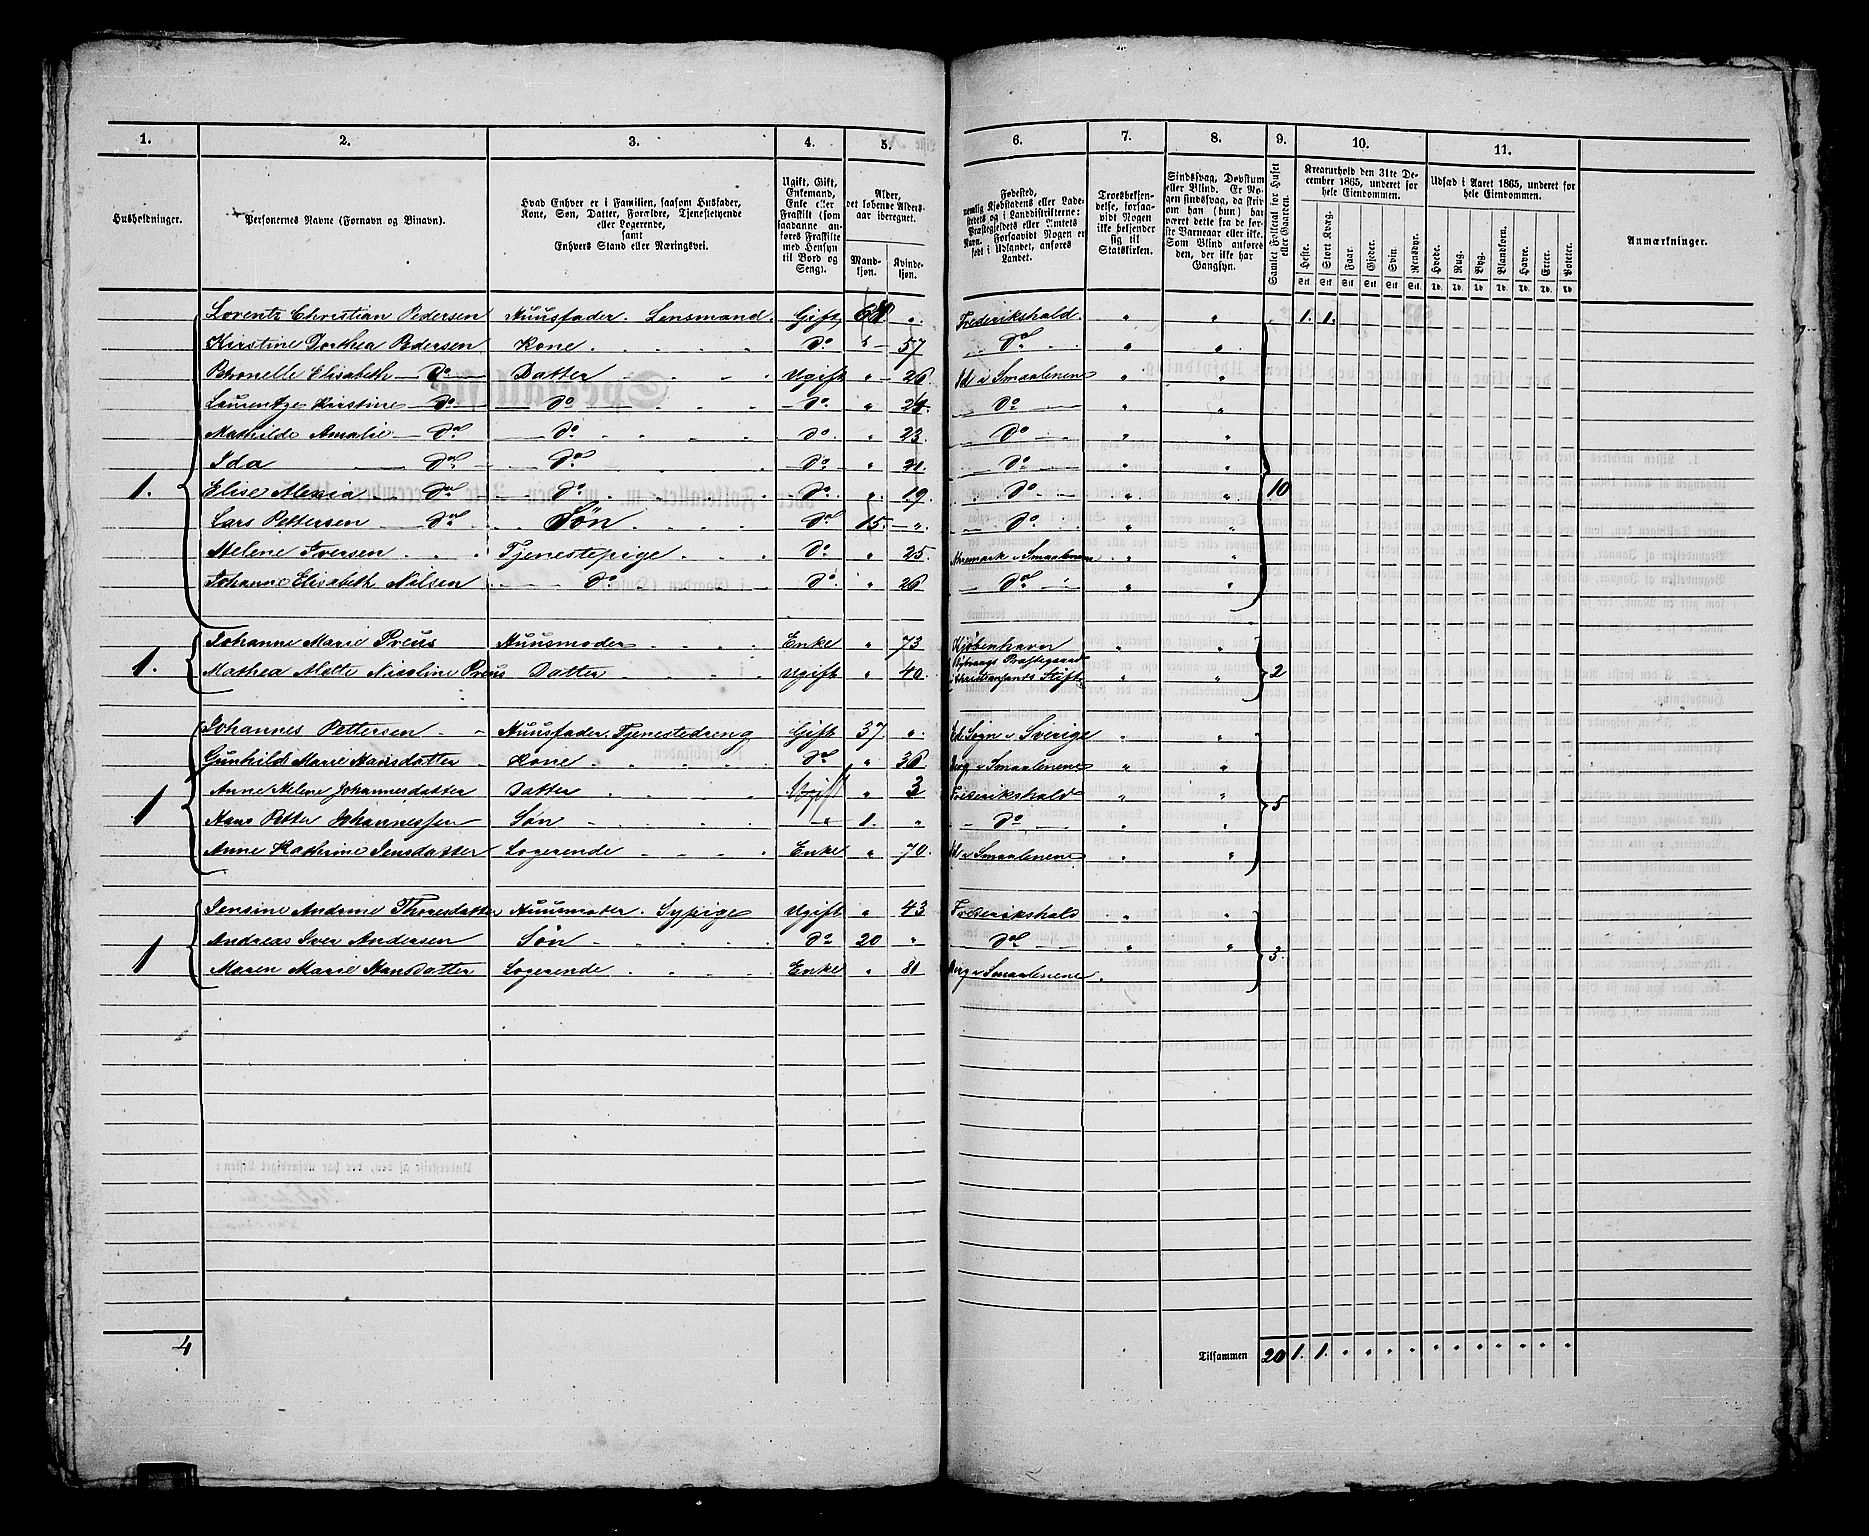 1. 2. 3. 4. 5. 6. 7. 8. 9. 10. 11.
Husholdninger.
Personernes Navne (Fornavn og Binavn).
Hvad Enhver er i Familien, saasom Husfader,
Kone, Søn, Datter, Forældre, Tjenestetyende
eller Logerende,
samt
Enhvers Stand eller Næringsvei.
Ugift, Gift,
Enkemand,
Enke eller
Fraskilt (som
saadanne an-
føres Fraskilte
med Hensyn
til Bord og
Seng).
Alder,
det løbende Alders-
aar iberegnet.
Mand-
kjøn.
Kvinde-
kjøn.
Fødested,
nemlig Kjøbstadens eller Lade-
stedets og i Landdistrikterne:
Præstegjeldets eller Amtets
Navn. Forsaavidt Nogen er
født i Udlandet, anføres
Landet.
Troesbekjen-
delse, forsaa-
vidt Nogen
ikke bekjender
sig til
Statskirken.
Sindssvag, Døvstum
eller Blind. Er No-
gen sindssvag, da skriv
om han (hun) har
været dette fra de før-
ste Barneaar eller ikke.
Som Blind anføres
den, der ikke har
Gangsyn.
Samlet Folketal for Huset
eller Gaarden.
Kreaturhold den 31te De-
cember 1865, underet for
hele Eiendommen.
Heste. Stort Kvæg. Faar. Gjeder. Svin. Rensdyr.
Stk. Stk. Stk. Stk. Stk. Stk.
Udsæd i Aaret 1865, underet for
hele Eiendommen.
Hvede. Rug. Byg. Blandkorn. Havre. Erter. Poteter.
Td. Td. Td. Td. Td. Td. Td.
Anmærkninger.
Lorentz Christian Pedersen Huusfader. Lensmand. Gift „ Frederikshald „ „ 1. 1.
Kirstine Dorthea Pedersen Kone do „ 57 do „ „
Petronelle Elisabeth do Datter Ugift „ 26 Id i Smaalenene „ „
Laurentze Kirstine do do do „ do „ „
Mathilde Amalie do do do „ 23 do „ „
Ida do do do „ 21. do „ „
1. Elise Alexia do do do „ 19. do „ „ 10
Lars Pettersen do Søn do 15. „ do „
Helene Iversen Tjenestepige do „ 25. Aremark i Smaalenene „ „
Johanne Elisabeth Nilsen do do „ 26 do „ „
Johanne Marie Preus Huusmoder Enke „ 73 Kjøbenhavn „ „
1. Mathea Nicoline Preus Datter Ugift „ 40 Præstegaard Christiansands Stift „ „ 2
Johannes Pettersen Huusfader. Tjenestedreng Gift 37. „ Sogn i Sverige „ „
Gunhild Marie Hansdatter Kone do „ 36 Berg i Smaalenene „ „
Anne Helene Johannesdatter Datter Ugift „ 3 Frederikshald „ „
1 Hans Petter Johannessen Søn „ 1. „ do „ „ 5
Anne Kathrine Jensdatter Logerende Enke „ 70. Id i Smaalenene „ „
Jensine Andrine Thoresdatter Huusmoder. Sypige Ugift „ 43 Frederikshald „ „
1 Andreas Iver Andersen Søn do 20 „ do „ „ 3.
Maren Marie Hansdatter Logerende Enke „ 81 Berg i Smaalenene
4
Tilsammen 20 1. 1. „ „ „ „ „ „ „ „ „ „ „